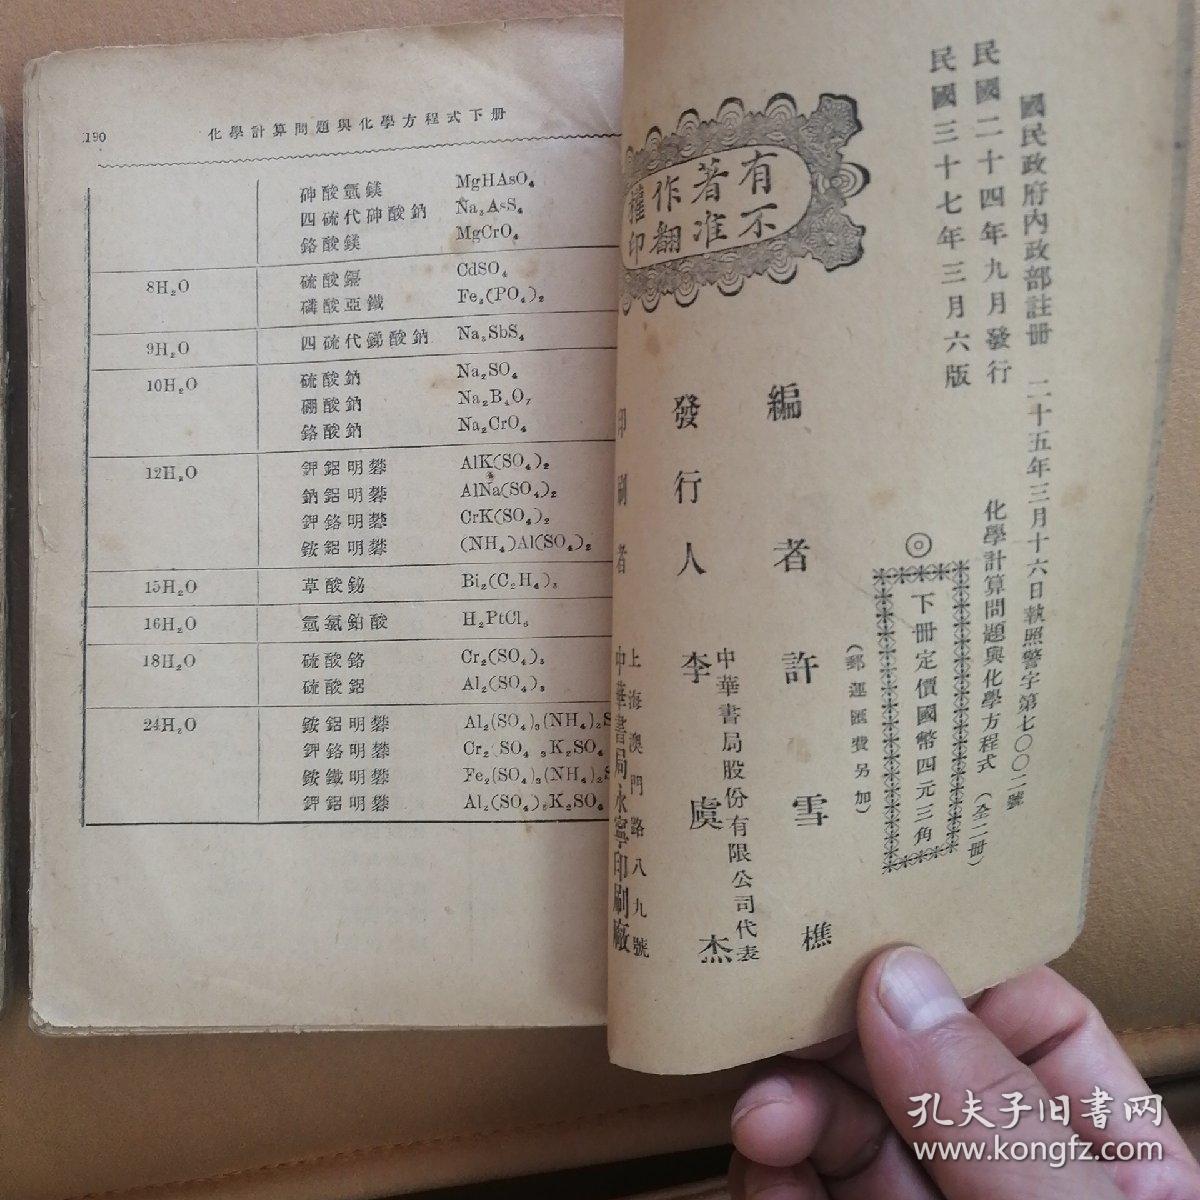 190
化學計算問題與化學方程式下册
砷酸氫鎂 MgHAsO₄
四硫代砷酸鈉 Na₃AsS₄
鉻酸鎂 MgCrO₄
8H₂O 硫酸鎘 CdSO₄
磷酸亞鐵 Fe₃(PO₄)₂
9H₂O 四硫代銻酸鈉 Na₃SbS₄
10H₂O 硫酸鈉 Na₂SO₄
硼酸鈉 Na₂B₄O₇
鉻酸鈉 Na₂CrO₄
12H₂O 鉀鋁明礬 AlK(SO₄)₂
鈉鋁明礬 AlNa(SO₄)₂
鉀鉻明礬 CrK(SO₄)₂
銨鋁明礬 (NH₄)Al(SO₄)₂
15H₂O 草酸鉍 Bi₂(C₂H₄)₃
16H₂O 氫氯鉑酸 H₂PtCl₆
18H₂O 硫酸鉻 Cr₂(SO₄)₃
硫酸鋁 Al₂(SO₄)₃
24H₂O 銨鋁明礬 Al₂(SO₄)₃(NH₄)₂S
鉀鉻明礬 Cr₂(SO₄)₃K₂SO₄
銨鐵明礬 Fe₂(SO₄)₃(NH₄)₂S
鉀鋁明礬 Al₂(SO₄)₃K₂SO₄
國民政府內政部註册 二十五年三月十六日執照警字第七〇〇二號
民國二十四年九月發行
民國三十七年三月六版
有著作權
不准翻印
化學計算問題與化學方程式(全二册)
◎下册定價國幣四元三角
(郵運匯費另加)
編者 許雪樵
發行人 李虞杰
中華書局股份有限公司代表
印刷者 中華書局永寧印刷廠
上海澳門路八九號
孔夫子旧书网
www.kongfz.com